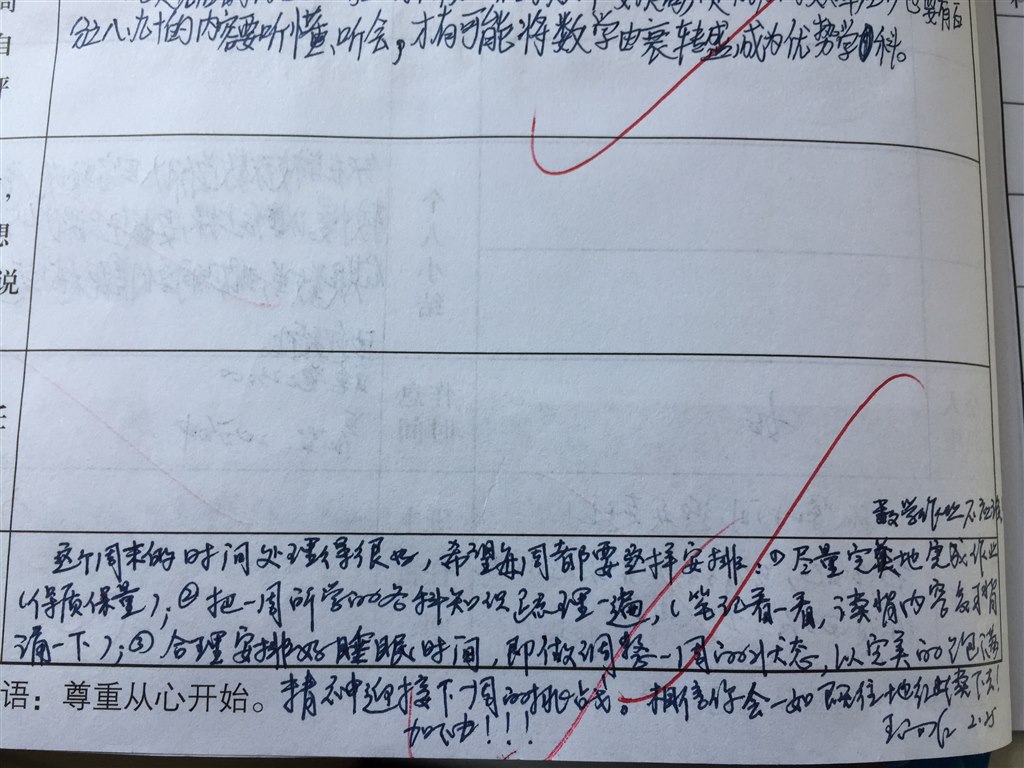 也要有百
分八、九十的内容要听懂、听会，才有可能将数学由衰转盛成为优势学科。
自
评
想
说
个人小结
作息时间
数学作业不应该
这个周末的时间处理得很好，希望每周都要这样安排：①尽量完美地完成作业
（保质保量）；②把一周所学的各科知识已经理一遍，（笔记看一看，读背内容多背
诵一下）；③合理安排好睡眠时间，即做调整一周的状态，以完美的饱满
语：尊重从心开始。精神迎接下周的挑战。相信你会一如既往地继续下去！
加油！！！
2.25